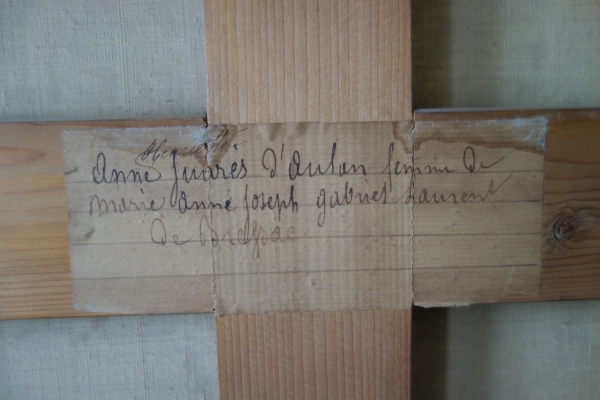 anne Juarés d'aulan femme de
marie anne joseph gabriel Laurent
De